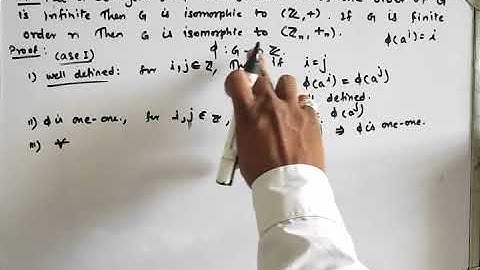 order of G
is infinite Then G is isomorphic to (Z,+). If G is finite
order n Then G is isomorphic to (Zn, +n).
Proof: (CASE I) φ: G Z. φ(aⁱ)=i
i) well defined: for i,j ∈ Z, if i=j
φ(aⁱ) = φ(aʲ)
defined.
ii) φ is one-one., for i,j ∈ Z, φ(aʲ)
⇒ φ is one-one.
iii) ∀